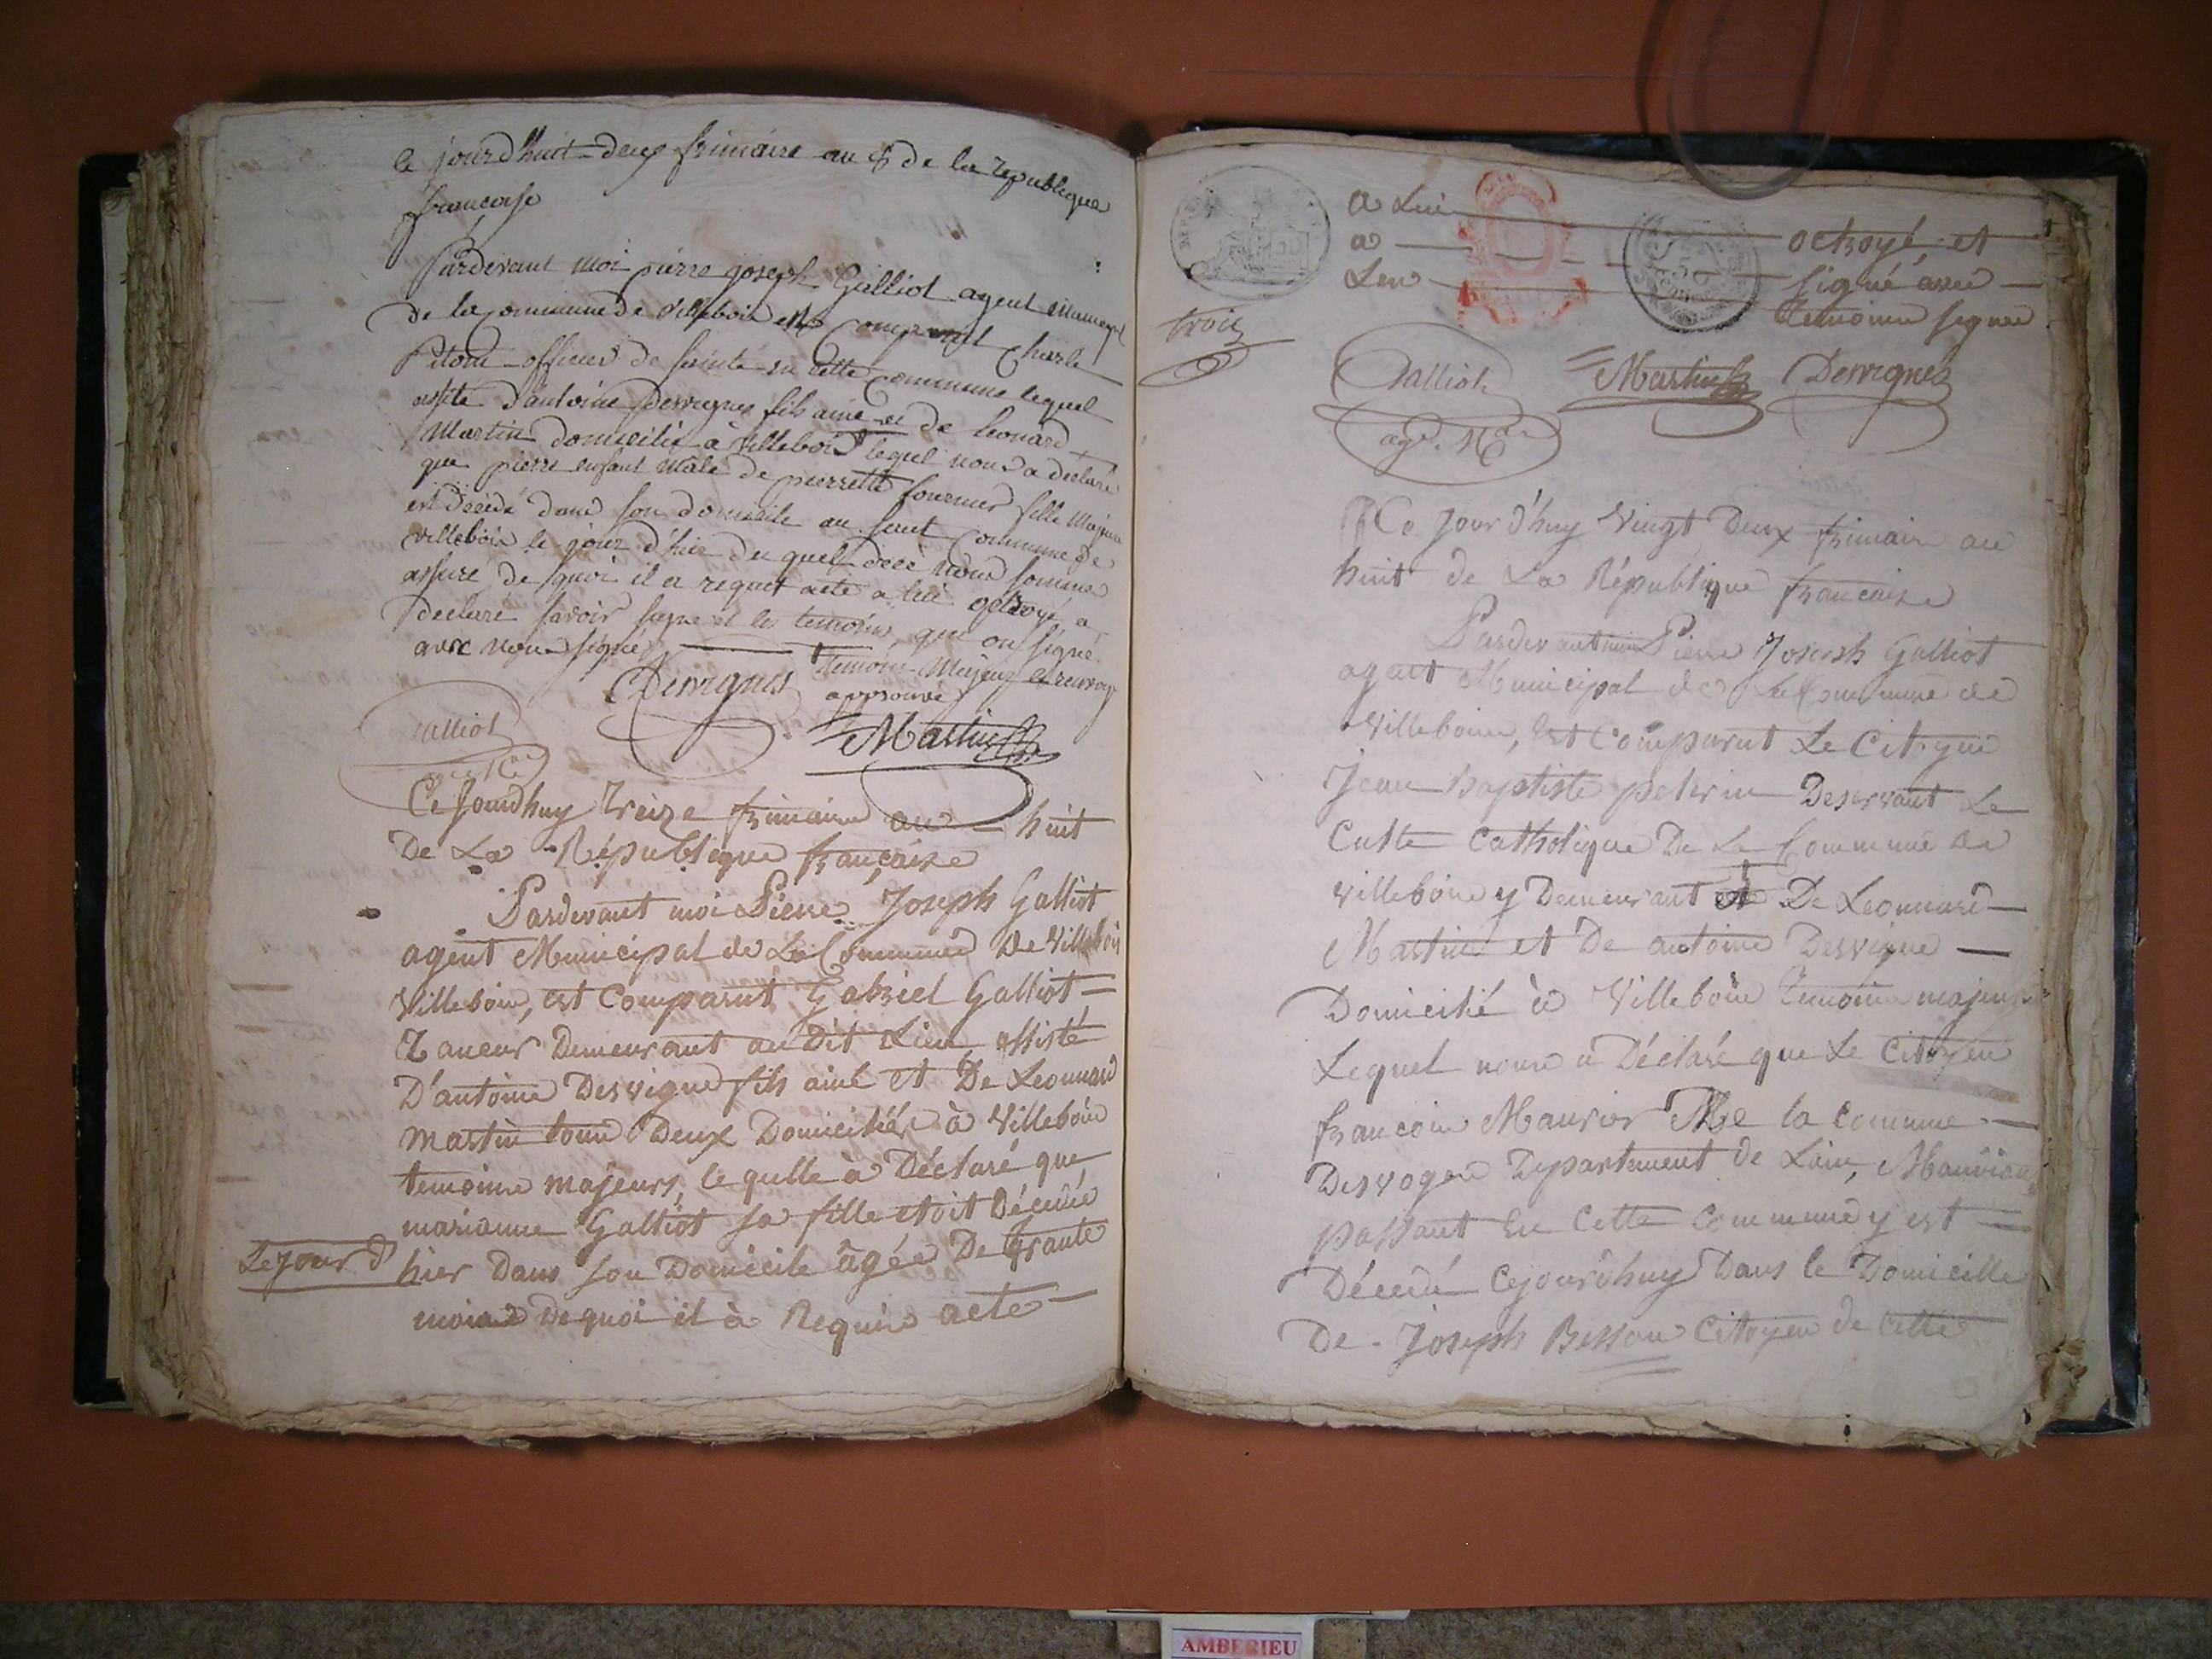 le jourd'huit deux frimaire an 8 de la republique
francaise
Pardevant moi pierre joseph Galliot agent municipal
de la commune de villebois est comparut charle
officier de santé en cette commune lequel
assité d'antoine Desvignes fils ainé et de leonard
Martin domicilié à villebois lequel nous a declaré
que pierre enfant male de pierrette fournier fille majeure
est decedé dans son domicile au saut commune de
villebois le jour d'hier du quel decè nous somme
assuré de quoi il a requit acte a lui octroyé a
declaré savoir signé et les temoins qui on signé
avec nous signé
temoins majeur et renvoy
approuvé
Desvignes
Galliot
Martin
Ce Jourdhuy treize frimaire an huit
De La République française
Pardevant moi Pierre Joseph Galliot
agent Municipal de La Commune De Villebois
Villebois, est Comparut Gabriel Galliot
Taneur Demeurant au dit Lieu assisté
D'antoine Desvigne fils ainé et De Leonnard
Martin tous Deux Domiciliés à Villebois
temoins majeurs, le quelle à Déclaré que
marianne Galliot sa fille etoit Décédée
Le jour d' hier Dans son Domicile âgée De trante
mois de quoi il à Requis acte
trois
a Lui
a octroyé et
Len signé avec
Temoins signer
Galliot Martin Desvignes
agt. Mal
Ce jour d'huy Vingt Deux frimaire an
huit de La République francaise
Pardevant moi Pierre Joseph Galliot
agent Municipal de La Commune de
Villebois, Est Comparut Le Citoyen
Jean Baptiste pelerin Deservant Le
Culte Catholique De La Commune de
villebois y Demeurant De Leonnard
Martin et De antoine Desvigne
Domicilié à Villebois Temoins majeurs
Lequel nous à Déclaré que Le Citoyen
francois Maurier De la Commune
Desvoges Departement de Lain,
passant En Cette commune y est
Décedé Cejourdhuy Dans le Domicille
De Joseph Besson Citoyen de Cette
AMBERIEU